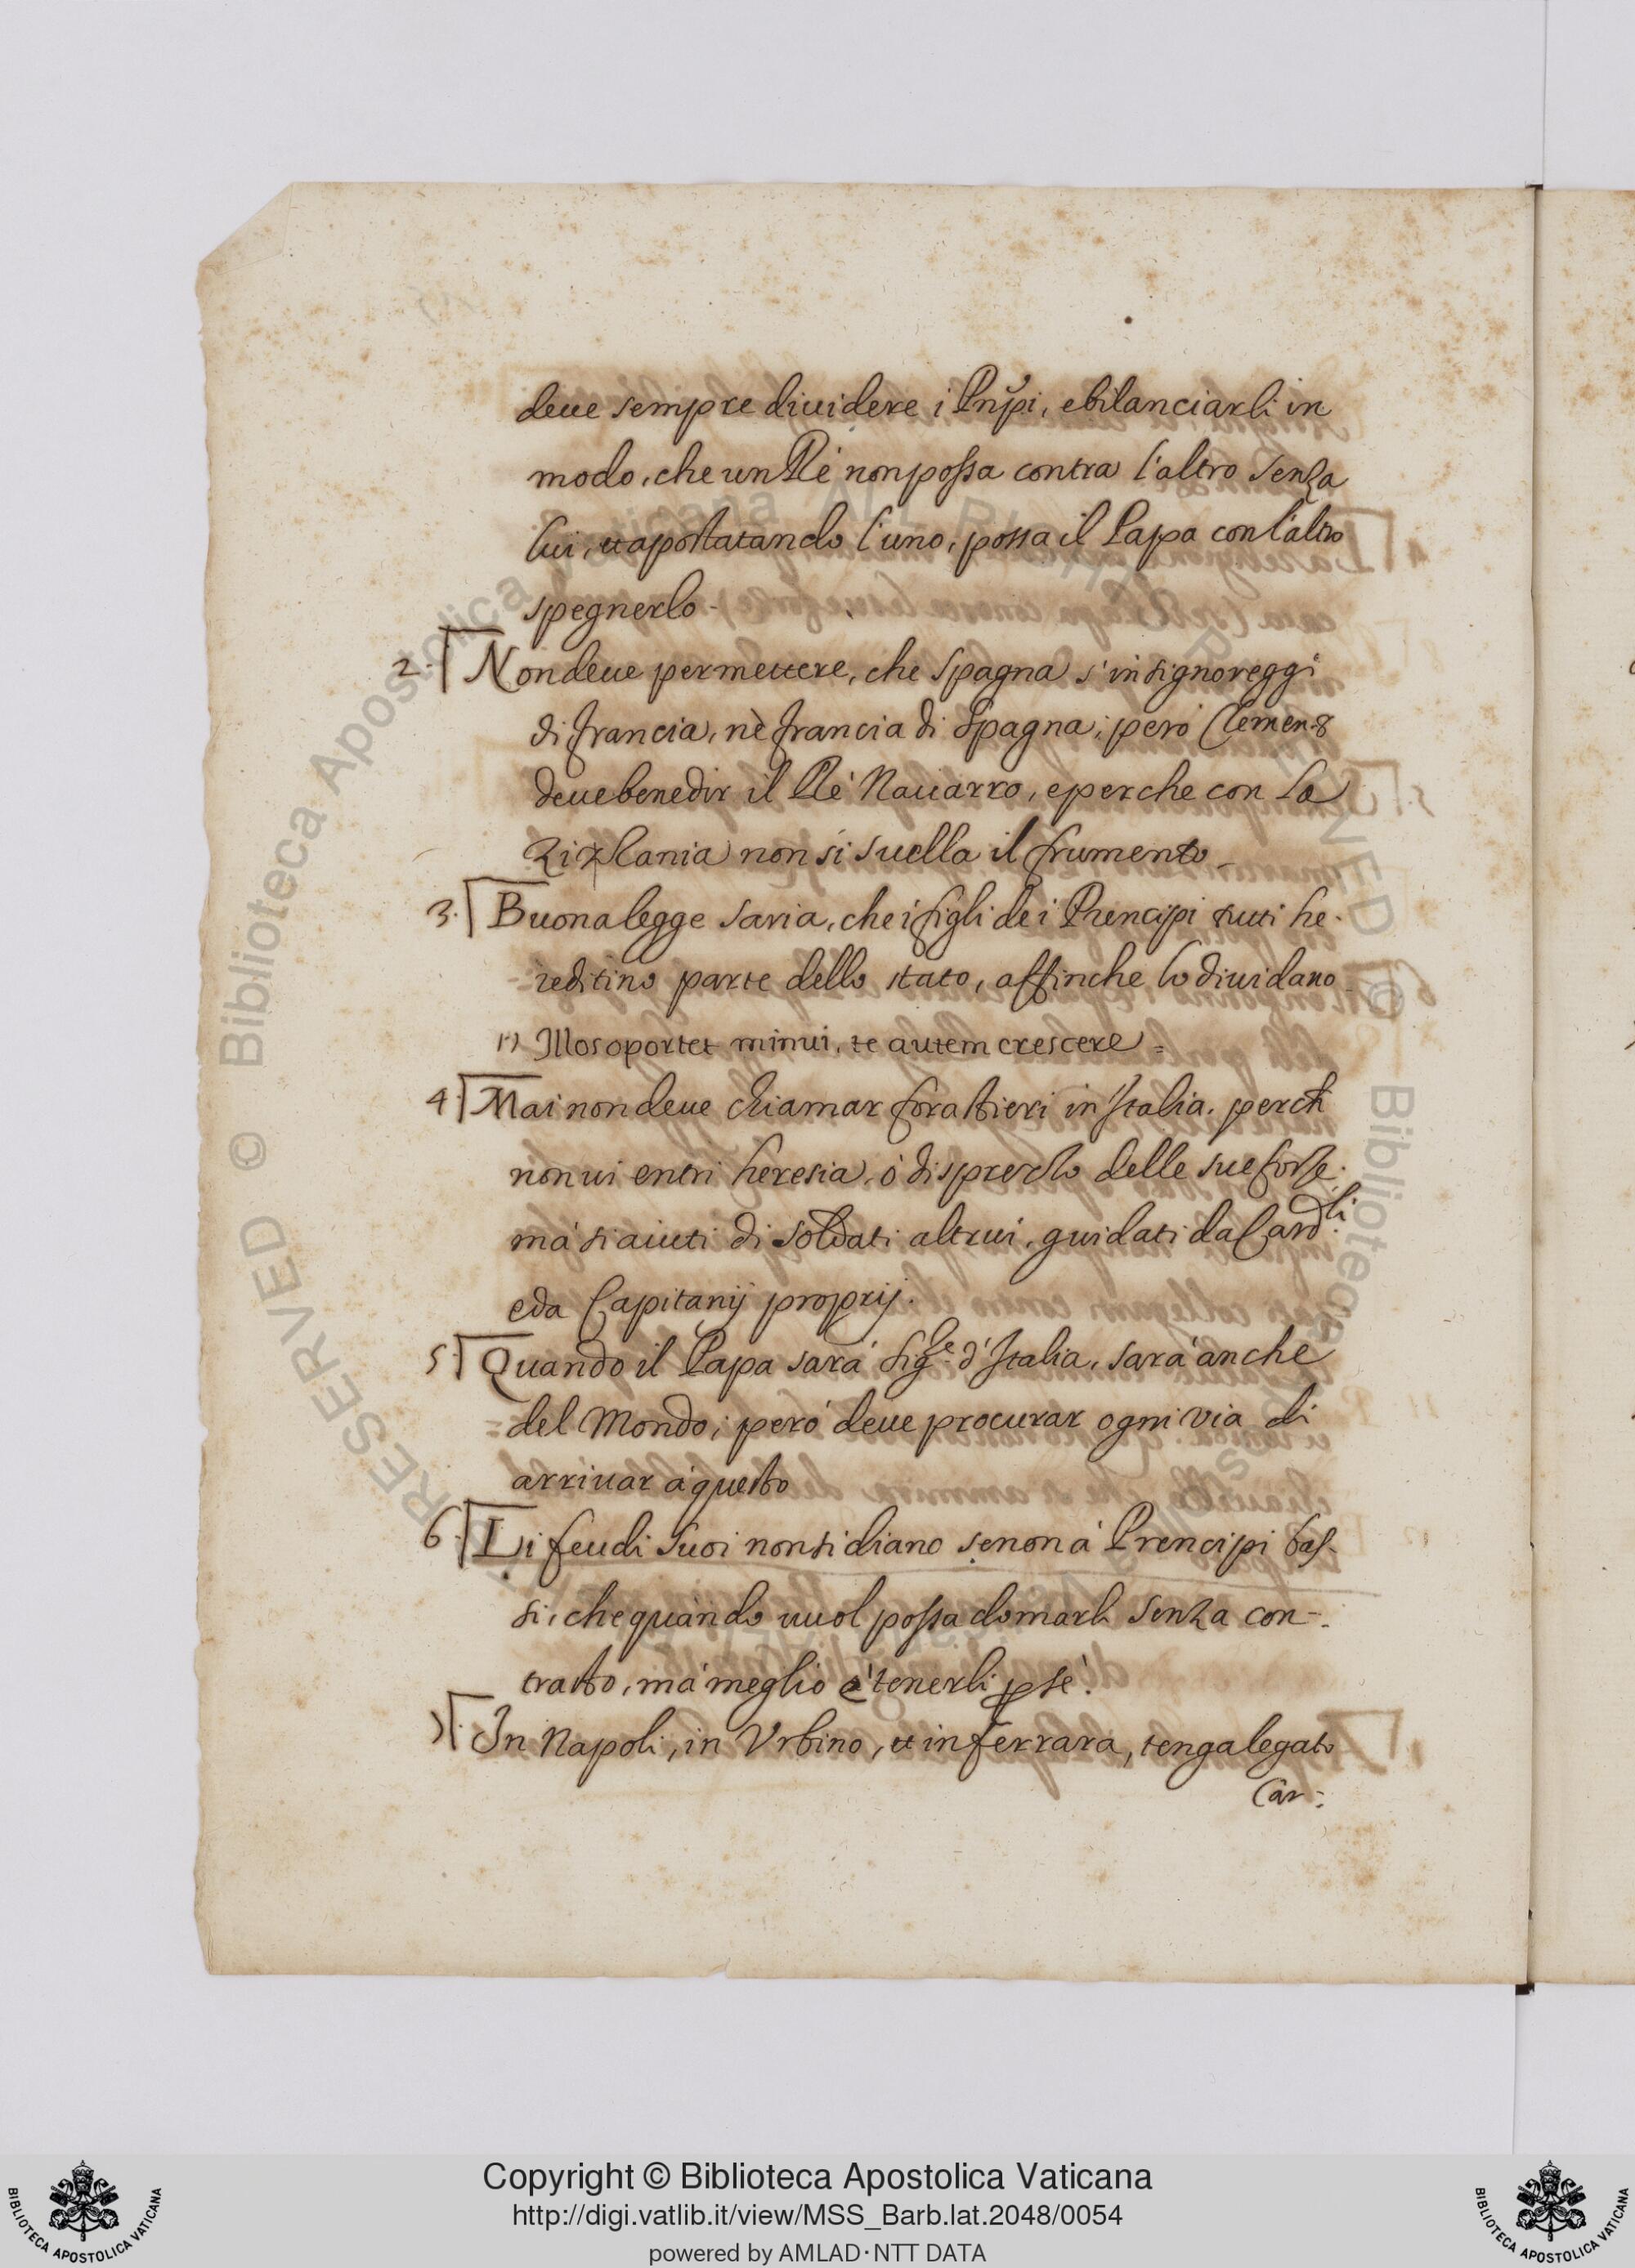 deue sempre diuidere i Prñpi, e bilanciarli in
modo, che un Rè non possa contra l'altro senza
lui, et apostatando l'uno, possa il Papa con l'altro
spegnerlo.
2. Non deue permettere, che Spagna s'insignoreggi
di Francia, nè Francia di Spagna; però Clemen. 8
deue benedir il Rè Nauarro, e perche con la
Zizania non si suella il frumento.
3. Buona legge saria, che i figli de i Prencipi tutti he-
reditino parte dello stato, affinche lo diuidano
Illos oportet minui, te autem crescere =
4. Mai non deue chiamar forastieri in Italia. perch
non ui entri heresia, ò disprezzo delle sue forze.
mà si aiuti di soldati altrui, guidati da Card.li
e da Capitanij proprij.
5. Quando il Papa sarà Sig.re d'Italia, sarà anche
del Mondo; però deue procurar ogni via di
arriuar à questo
6. Li feudi suoi non si diano se non à Prencipi bas-
si, che quando uuol possa domarli senza con-
trasto, mà meglio è tenerli p se.
7. In Napoli, in Vrbino, et in Ferrara, tenga legato
Car-
Copyright © Biblioteca Apostolica Vaticana
http://digi.vatlib.it/view/MSS_Barb.lat.2048/0054
powered by AMLAD·NTT DATA
BIBLIOTECA APOSTOLICA VATICANA
BIBLIOTECA APOSTOLICA VATICANA